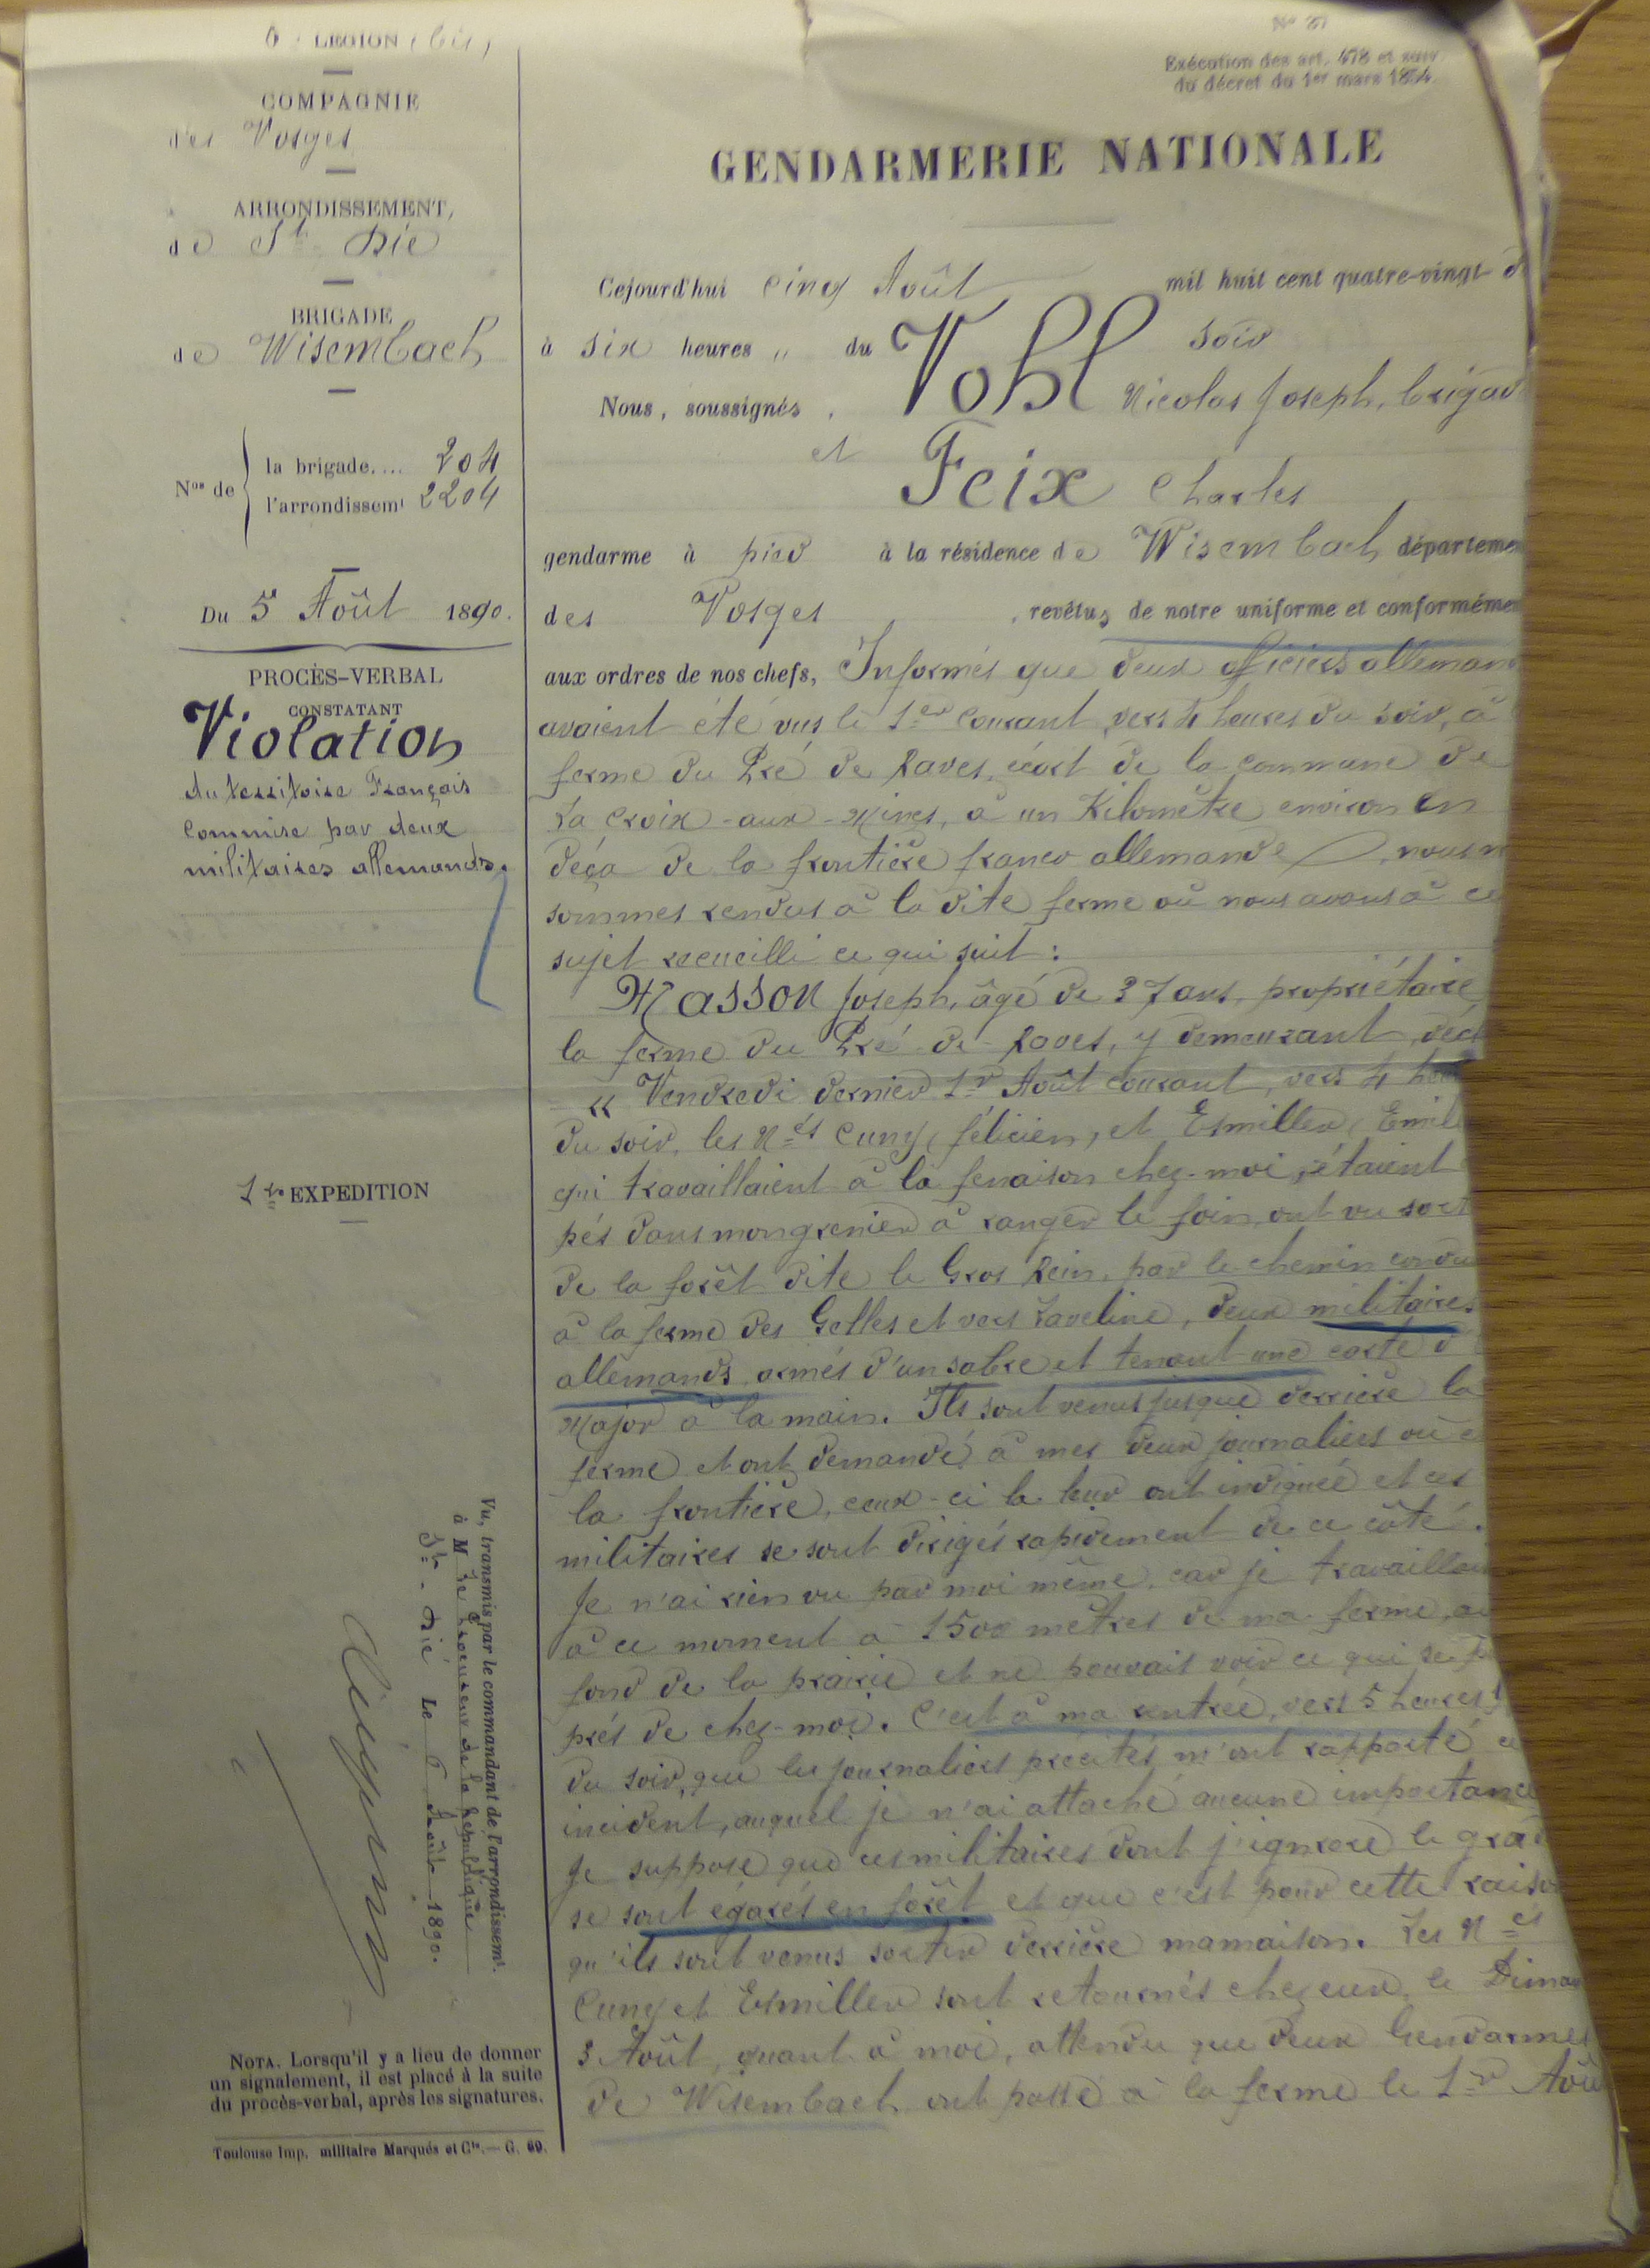 6 LEGION (bis)
COMPAGNIE
des Vosges
ARRONDISSEMENT,
de St Dié
BRIGADE
de Wisembach
Nos de
la brigade.... 204
l'arrondissemt 2204
Du 5 Août 1890.
PROCÈS-VERBAL
CONSTATANT
Violation
du territoire Français
Commise par deux
militaires allemands.
1re EXPEDITION
Vu, transmis par le commandant de l'arrondissemt.
à M le Procureur de la République
St. Dié Le 6 Août 1890.
NOTA. Lorsqu'il y a lieu de donner
un signalement, il est placé à la suite
du procès-verbal, après les signatures.
Toulouse Imp. militaire Marqués et Cie.— G. 60.
No 37
Exécution des art. 478 et suiv.
du décret du 1er mars 1854.
GENDARMERIE NATIONALE
Cejourd'hui cinq Août mil huit cent quatre-vingt d
à six heures " du soir
Nous, soussignés, Vohl Nicolas Joseph, brigad
et Feix Charles
gendarme à pied à la résidence de Wisembach départeme
des Vosges, revêtus de notre uniforme et conformémen
aux ordres de nos chefs, Informés que deux officiers alleman
avaient été vus le 1er courant, vers 4 heures du soir, à
ferme du Pré de Raves, écart de la commune de
La Croix-aux-Mines, à un Kilomètre environ en
deça de la frontière franco allemande, nous n
sommes rendus à la dite ferme où nous avons à ce
sujet recueilli ce qui suit :
Masson Joseph, âgé de 37 ans, propriétaire
la ferme du Pré de Raves, y demeurant, décl
« Vendredi dernier 1er Août courant, vers 4 heu
du soir, les Nés Cuny, félicien, et Esmiller, Emil
qui travaillaient à la fenaison chez-moi, étaient
pés dans mon grenier à ranger le foin, ont vu sort
de la forêt dite le Gros Rein, par le chemin condu
à la ferme des Gelles et vers Laveline, deux militaires
allemands armés d'un sabre et tenant une carte d
Major à la main. Ils sont venus jusque derrière la
ferme et ont demandé à mes deux journaliers où e
la frontière, ceux-ci la leur ont indiquée et ces
militaires se sont dirigés rapidement de ce côté.
Je n'ai rien vu par moi même, car je travaillai
à ce moment à 1500 mètres de ma ferme, au
fond de la prairie et ne pouvait voir ce qui se p
près de chez-moi. C'est à ma rentrée, vers 5 heures ½
du soir, que les journaliers précités m'ont rapporté ce
incident, auquel je n'ai attaché aucune importance
Je suppose que ces militaires dont j'ignore le grad
se sont égarés en forêt et que c'est pour cette raison
qu'ils sont venus sortir derrière ma maison. Les Nés
Cuny et Esmiller sont retournés chez eux, le Diman
3 Août, quant à moi, attendu que deux Gendarmes
de Wisembach ont passé à la ferme le 1er Aoû